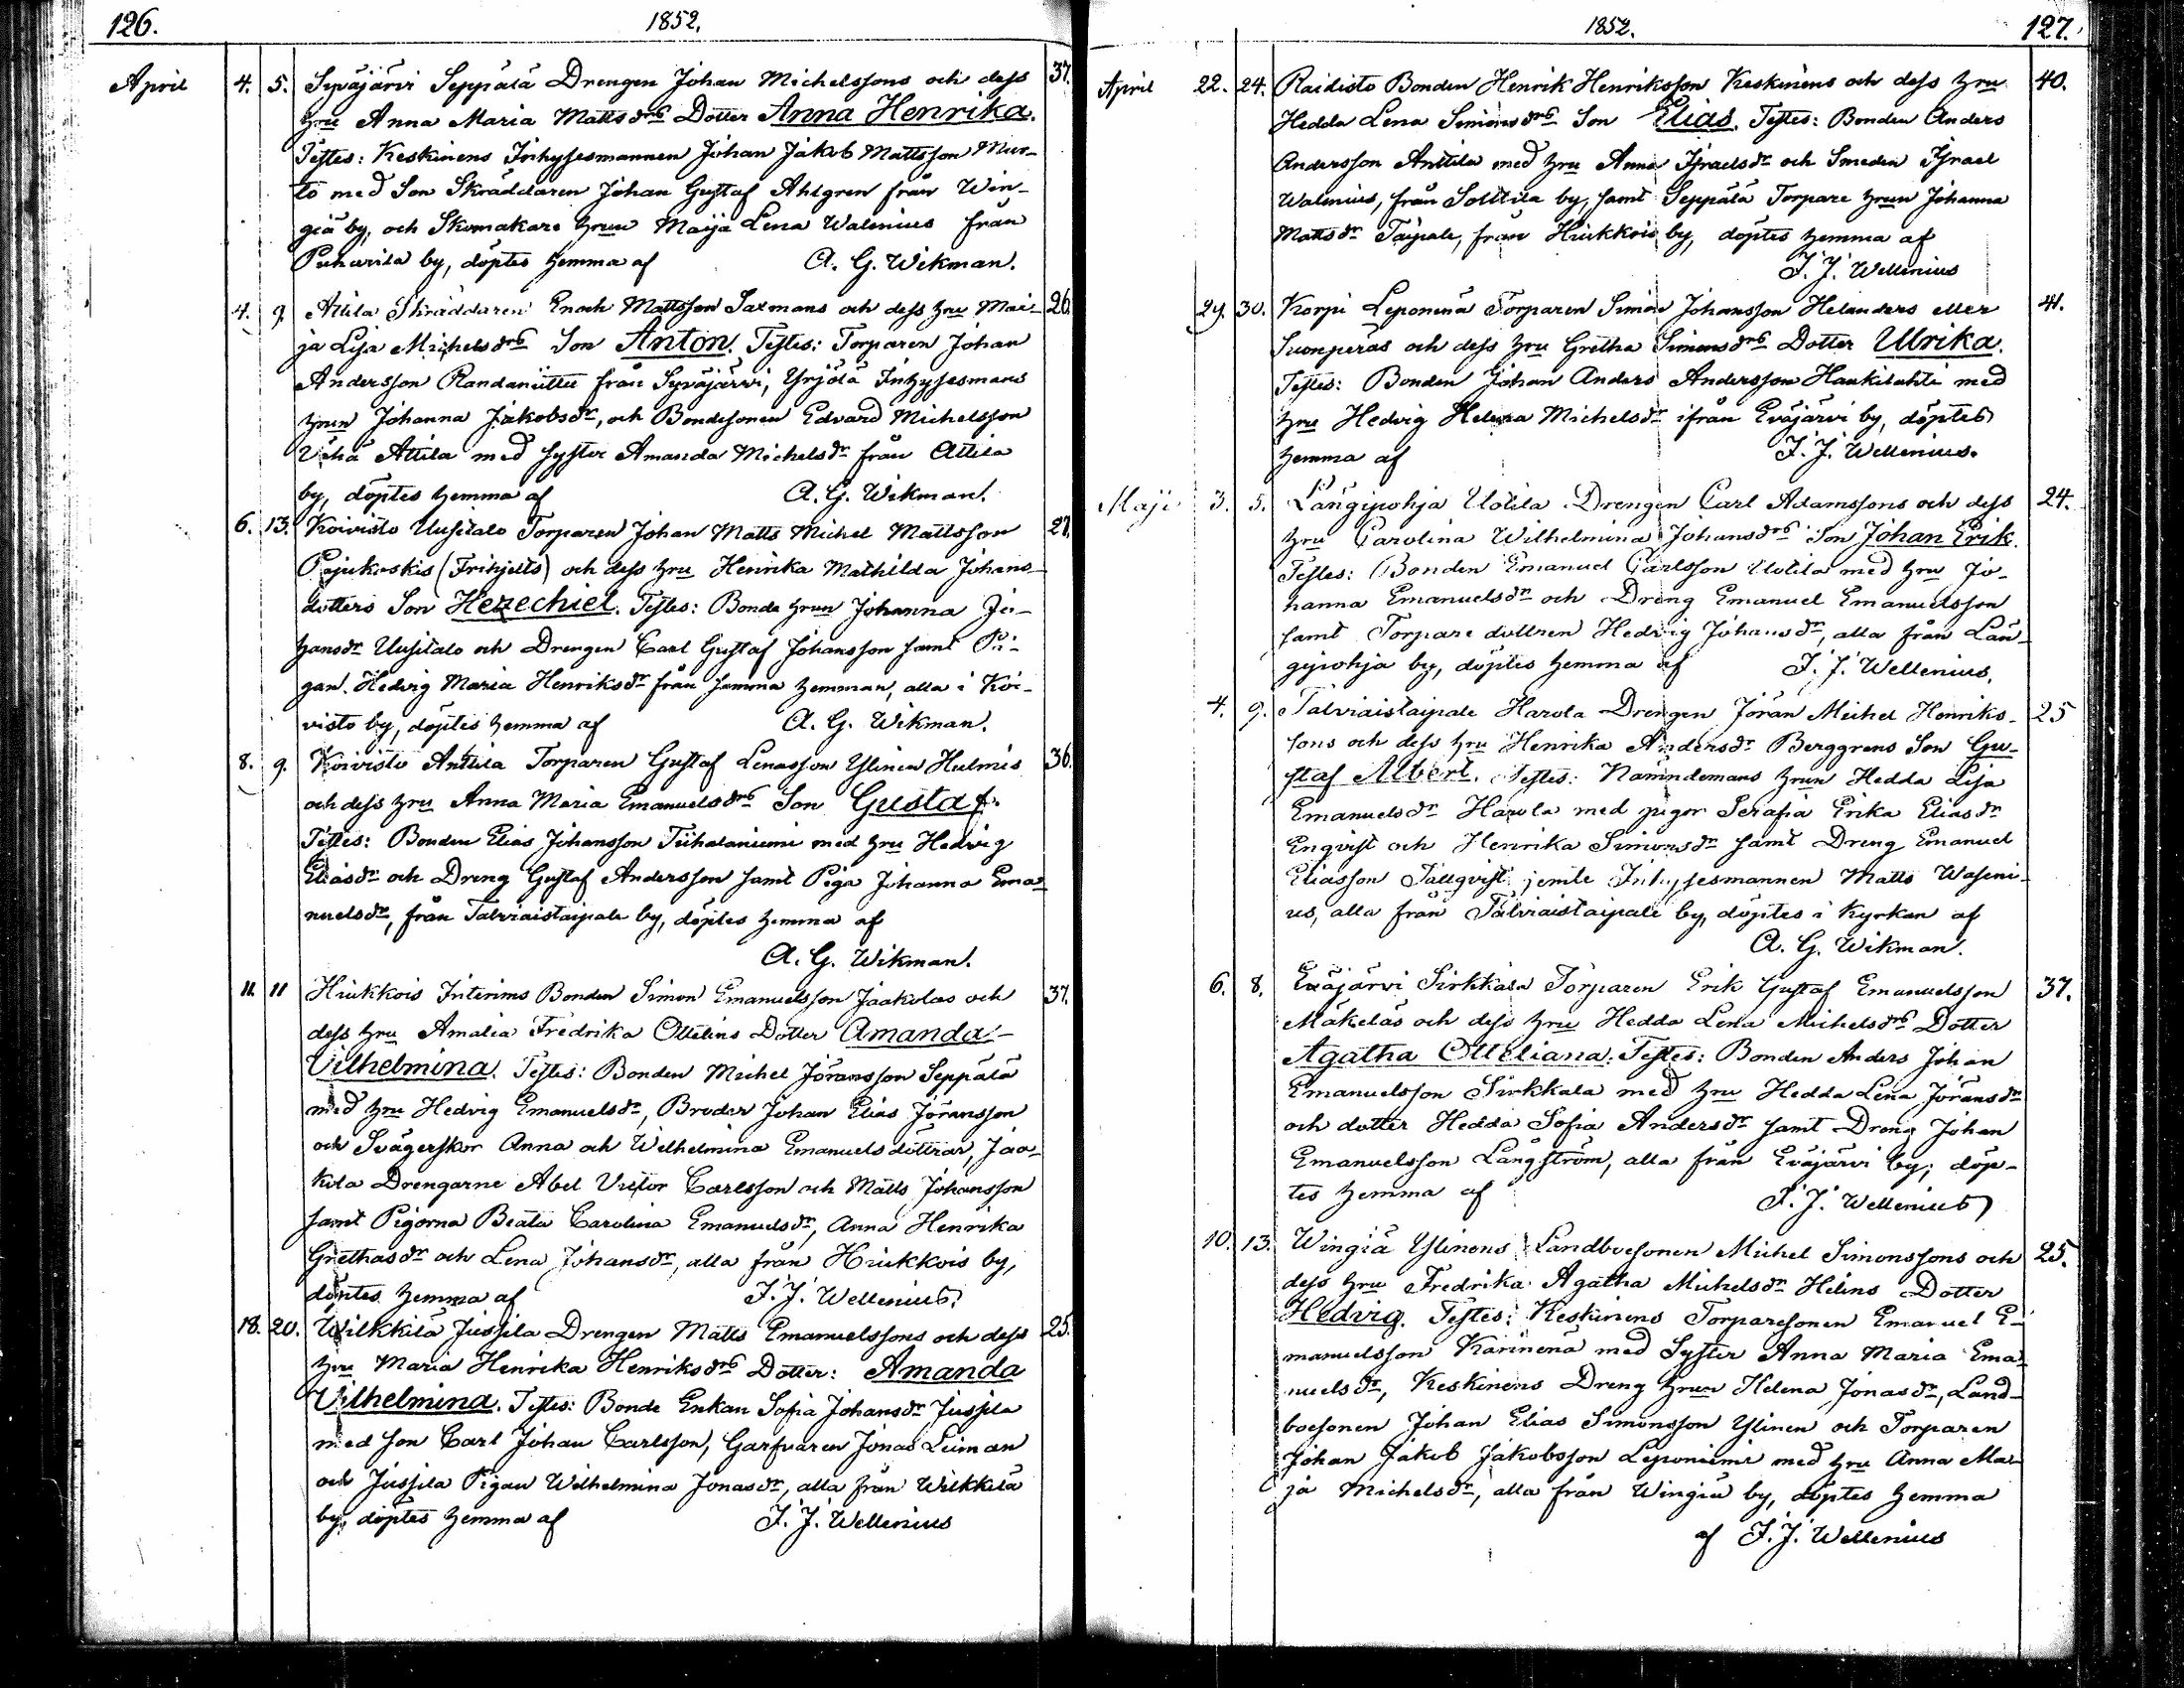 126.
1852.
April 4. 5. Syväjärvi Seppälä Drengen Johan Michelssons och dess 37.
hru Anna Maria Mattsdrs Dotter Anna Henrika.
Testes: Keskinens Inhysesmannen Johan Jakob Mattsson Mur-
to med Son Skräddaren Johan Gustaf Ahlgren från Win-
giä by, och Skomakare hrun Maija Lena Walenius från
Puharila by, döptes hemma af A. G. Wikman.
4. 9. Attila Skräddaren Enoch Mattsson Saxmans och dess hru Mai- 26.
ja Lisa Michelsdrs Son Anton. Testes: Torparen Johan
Andersson Randaniittu från Syväjärvi, Yrjölä Inhysesmans
hrun Johanna Jakobsdr, och Bondesonen Edvard Michelsson
Vähä Attila med syster Amanda Michelsdr från Attila
by, döptes hemma af A. G. Wikman.
6. 13. Koivisto Uusitalo Torparen Johan Matts Michel Mattsson 27.
Pajukoskis (Frihjelts) och dess hru Henrika Mathilda Johans-
dotters Son Hezechiel. Testes: Bonde hrun Johanna Jo-
hansdr Uusitalo och Drengen Carl Gustaf Johansson samt Pi-
gan Hedvig Maria Henriksdr från samma hemman, alla i Koi-
visto by, döptes hemma af A. G. Wikman.
8. 9. Koivisto Anttila Torparen Gustaf Lenasson Ylinen Hulmis 36.
och dess hru Anna Maria Emanuelsdrs Son Gustaf.
Testes: Bonden Elias Johansson Tiihalaniemi med hru Hedvig
Eliasdr och Dreng Gustaf Andersson samt Piga Johanna Ema-
nuelsdr, från Talviaistaipale by, döptes hemma af
A. G. Wikman.
11. 11 Hirkkois Interims Bonden Simon Emanuelsson Jaakolas och 37.
dess hru Amalia Fredrika Ottelins Dotter Amanda
Vilhelmina. Testes: Bonden Michel Jöransson Seppälä
med hru Hedvig Emanuelsdr, Broder Johan Elias Jöransson
och Svägerskor Anna och Wilhelmina Emanuelsdöttrar, Jaa-
kola Drengarne Abel Victor Carlsson och Matts Johansson
samt Pigorna Beata Carolina Emanuelsdr, Anna Henrika
Grethasdr och Lena Johansdr, alla från Hirkkois by,
döptes hemma af J. J. Wellenius.
18. 20. Wilkkilä Jussila Drengen Matts Emanuelssons och dess 25.
hru Maria Henrika Henriksdrs Dotter: Amanda
Vilhelmina. Testes: Bonde Enkan Sofia Johansdr Jussila
med son Carl Johan Carlsson, Garfvaren Jonas Leiman
och Jussila Pigan Wilhelmina Jonasdr, alla från Wilkkilä
by, döptes hemma af J. J. Wellenius
1852.
127.
April 22. 24. Raidisto Bonden Henrik Henriksson Keskinens och dess hru 40.
Hedda Lena Simonsdrs Son Elias. Testes: Bonden Anders
Andersson Anttila med hru Anna Israelsdr och Smeden Israel
Walenius, från Solttila by, samt Seppälä Torpare hrun Johanna
Mattsdr Taipale, från Hirkkois by, döptes hemma af
J. J. Wellenius
29. 30. Korpi Leponenä Torparen Simon Johansson Helanders eller 41.
Suonperäs och dess hru Gretha Simonsdrs Dotter Ulrika.
Testes: Bonden Johan Anders Andersson Haukilahti med
hru Hedvig Helena Michelsdr ifrån Eväjärvi by, döptes
hemma af J. J. Wellenius.
Maji 3. 5. Längipohja Uotila Drengen Carl Adamssons och dess 24.
hru Carolina Wilhelmina Johansdrs Son Johan Erik.
Testes: Bonden Emanuel Carlsson Uotila med hru Jo-
hanna Emanuelsdr och Dreng Emanuel Emanuelsson
samt Torpare dottren Hedvig Johansdr, alla från Län-
gipohja by, döptes hemma af J. J. Wellenius.
4. 9. Talviaistaipale Harola Drengen Jöran Michel Henriks- 25
sons och dess hru Henrika Andersdr Berggrens Son Gu-
staf Albert. Testes: Nämndemans hrun Hedda Lisa
Emanuelsdr Harola med pigor Serafia Erika Eliasdr
Enqvist och Henrika Simonsdr samt Dreng Emanuel
Eliasson Tällqvist jemte Inhysesmannen Matts Waseni-
us, alla från Talviaistaipale by, döptes i Kyrkan af
A. G. Wikman.
6. 8. Eväjärvi Sirkkala Torparen Erik Gustaf Emanuelsson 37.
Mäkeläs och dess hru Hedda Lena Michelsdrs Dotter
Agatha Otteliana. Testes: Bonden Anders Johan
Emanuelsson Sirkkala med hru Hedda Lena Jöransdr
och dotter Hedda Sofia Andersdr samt Dreng Johan
Emanuelsson Långström, alla från Eväjärvi by, döp-
tes hemma af J. J. Wellenius
10. 13. Wingiä Ylinens Landboesonen Michel Simonssons och 25.
dess hru Fredrika Agatha Michelsdr Helins Dotter
Hedvig. Testes: Keskinens Torparesonen Emanuel E-
manuelsson Kärinenä med Syster Anna Maria Ema-
nuelsdr, Keskinens Dreng hrun Helena Jonasdr, Land-
boesonen Johan Elias Simonsson Ylinen och Torparen
Johan Jakob Jakobsson Leponiemi med hru Anna Ma-
ja Michelsdr, alla från Wingiä by, döptes hemma
af J. J. Wellenius